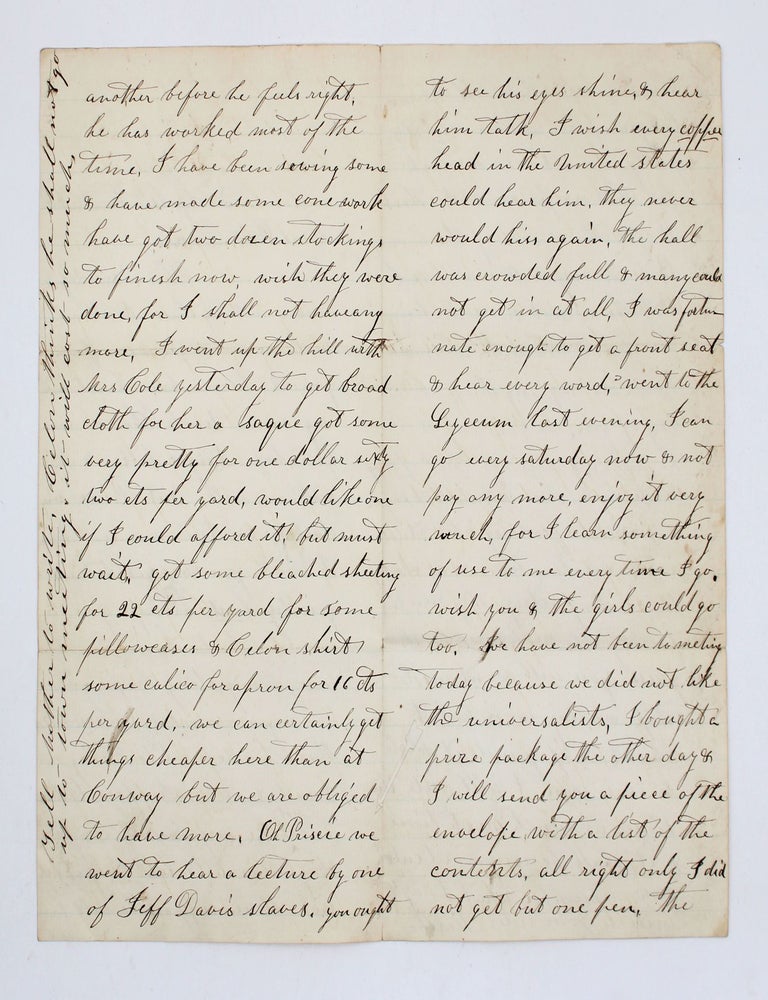 another before he feels right,
he has worked most of the
time, I have been sewing some
& have made some cone work
have got two dozen stockings
to finish now, wish they were
done, for I shall not have any
more, I went up the hill with
Mrs Cole yesterday to get broad
cloth for her a saque got some
very pretty for one dollar sixty
two cts per yard, would like one
if I could afford it, but must
wait, got some bleached sheeting
for 22 cts per yard for some
pillowcases & Celon shirt
some calico for apron for 16 cts
per yard, we can certainly get
things cheaper here than at
Conway but we are obliged
to have more. Oh we
went to hear a lecture by one
of Jeff Davis slaves. you ought
to see his eyes shine, & hear
him talk, I wish every copper
head in the United states
could hear him, they never
would hiss again, the hall
was crowded full & many could
not get in at all, I was fortu
nate enough to get a front seat
& hear every word, went to the
Lyceum last evening, I can
go every saturday now & not
pay any more, enjoy it very
much, for I learn something
of use to me every time I go.
wish you & the girls could go
too. We have not been to meting
today because we did not like
the universalists, I bought a
prize package the other day &
I will send you a piece of the
envelope with a list of the
contents, all right only I did
not get but one pen, the
Tell Mother to write, Celon thinks he shall not go
up to town meeting, it will cost so much,